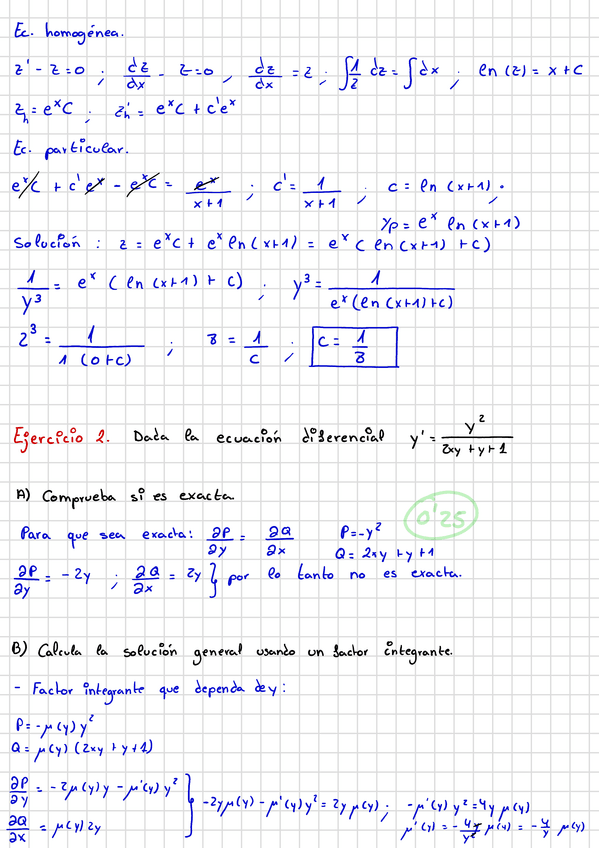 Ec. homogénea.
z' - z = 0 ; dz/dx - z = 0 , dz/dx = z ; ∫ 1/z dz = ∫ dx ; ln (z) = x + C
z_h = e^x C ; z_h' = e^x C + c' e^x
Ec. particular.
e^x C + c' e^x - e^x C = e^x/(x+1) ; c' = 1/(x+1) ; c = ln (x+1) .
y_p = e^x ln (x+1)
Solución : z = e^x C + e^x ln (x+1) = e^x ( ln (x+1) + C)
1/y^3 = e^x ( ln (x+1) + C) ; y^3 = 1/(e^x (ln (x+1) + C))
2^3 = 1/(1 (0+C)) ; 8 = 1/C ; C = 1/8
Ejercicio 2. Dada la ecuación diferencial y' = y^2/(2xy + y + 1)
A) Comprueba si es exacta.
0'25
Para que sea exacta: ∂P/∂y = ∂Q/∂x P = -y^2
Q = 2xy + y + 1
∂P/∂y = -2y ; ∂Q/∂x = 2y } por lo tanto no es exacta.
B) Calcula la solución general usando un factor integrante.
- Factor integrante que dependa de y :
P = -μ(y) y^2
Q = μ(y) (2xy + y + 1)
∂P/∂y = -2μ(y) y - μ'(y) y^2
∂Q/∂x = μ(y) 2y
} -2y μ(y) - μ'(y) y^2 = 2y μ(y) ; -μ'(y) y^2 = 4y μ(y)
μ'(y) = - 4y/y^2 μ(y) = - 4/y μ(y)